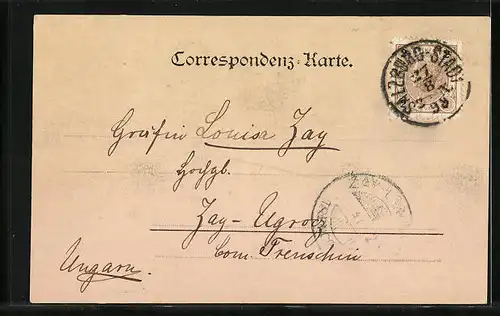 Correspondenz-Karte.
SALZBURG-STADT
Gräfin Louise Zay
Hochgb.
Zay-Ugrócz
Com. Trenschin
Ungarn.